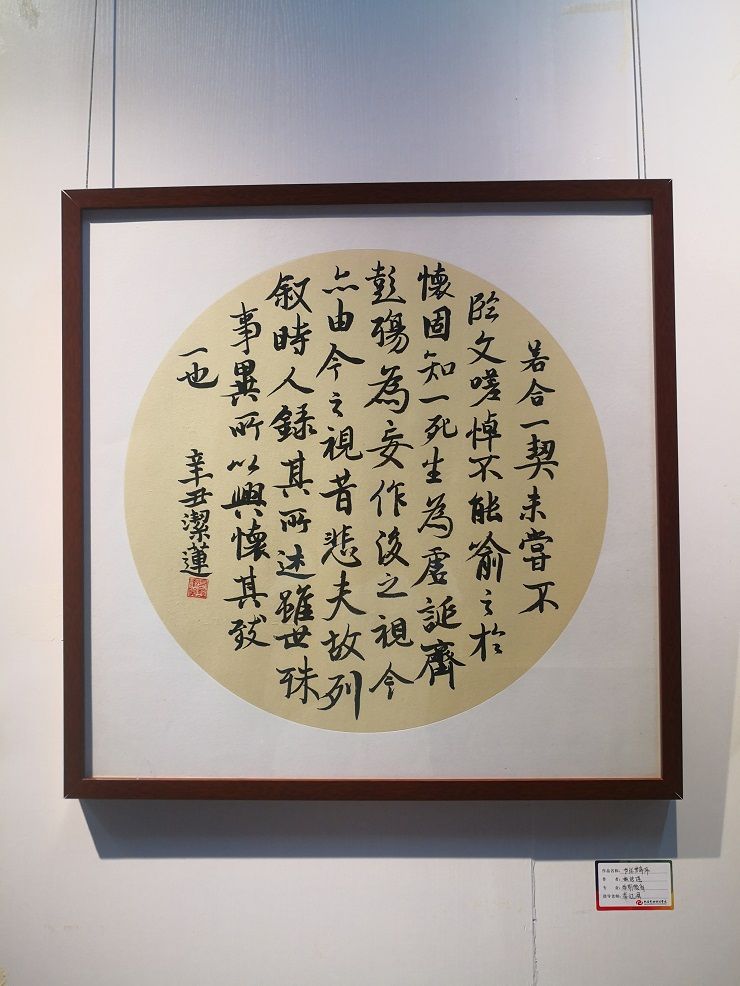 若合一契未嘗不
臨文嗟悼不能喻之於
懷固知一死生為虛誕齊
彭殤為妄作後之視今
亦由今之視昔悲夫故列
叙時人錄其所述雖世殊
事異所以興懷其致
一也
辛丑潔蓮
作品名称:
作 者:
专 业:
指导老师: